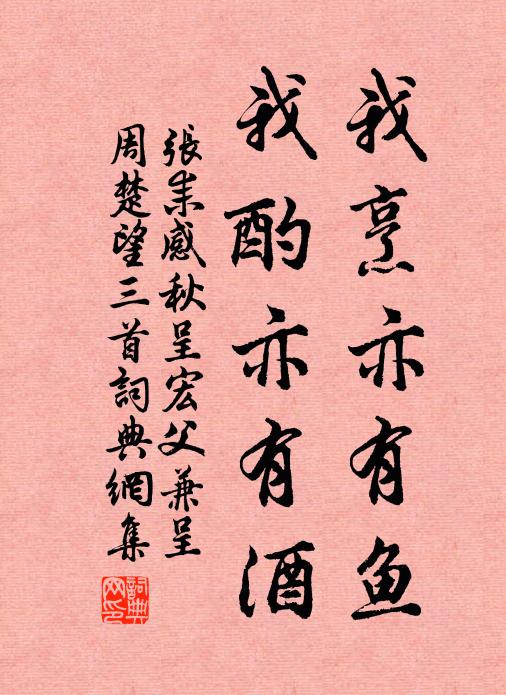 我烹亦有鱼
我酌亦有酒
張耒感秋呈宏父兼呈
周楚望三首詞典網集
詞典网印